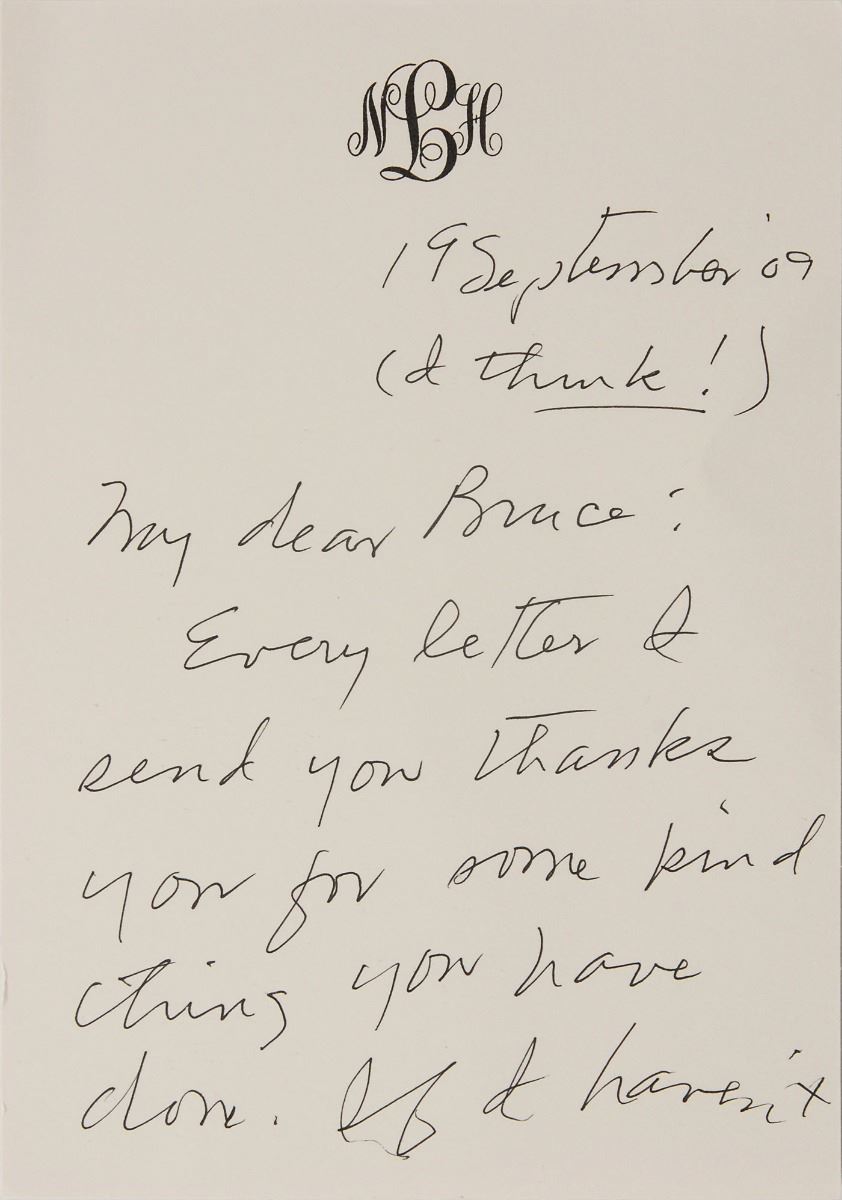 NLH
19 September '09
(I think!)
My dear Bruce:
Every letter I
send you thanks
you for some kind
thing you have
done. If I haven't